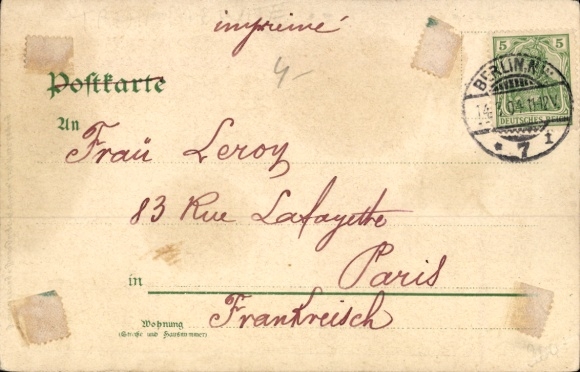 imprimé
4-
Postkarte
5 5
BERLIN.N.
14.7.04.11-12V.
DEUTSCHES REICH
* 7 i
An
Fraü Leroy
83 Rue Lafayette
in Paris
Frankreisch
Wohnung
(Straße und Hausnummer)